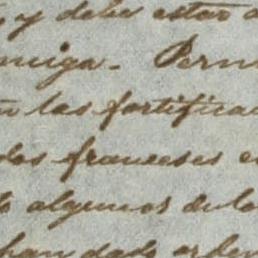 , y debe estar a
miga. Perm
n las fortifica
dos franceses e
algunos de lo
han dado orden